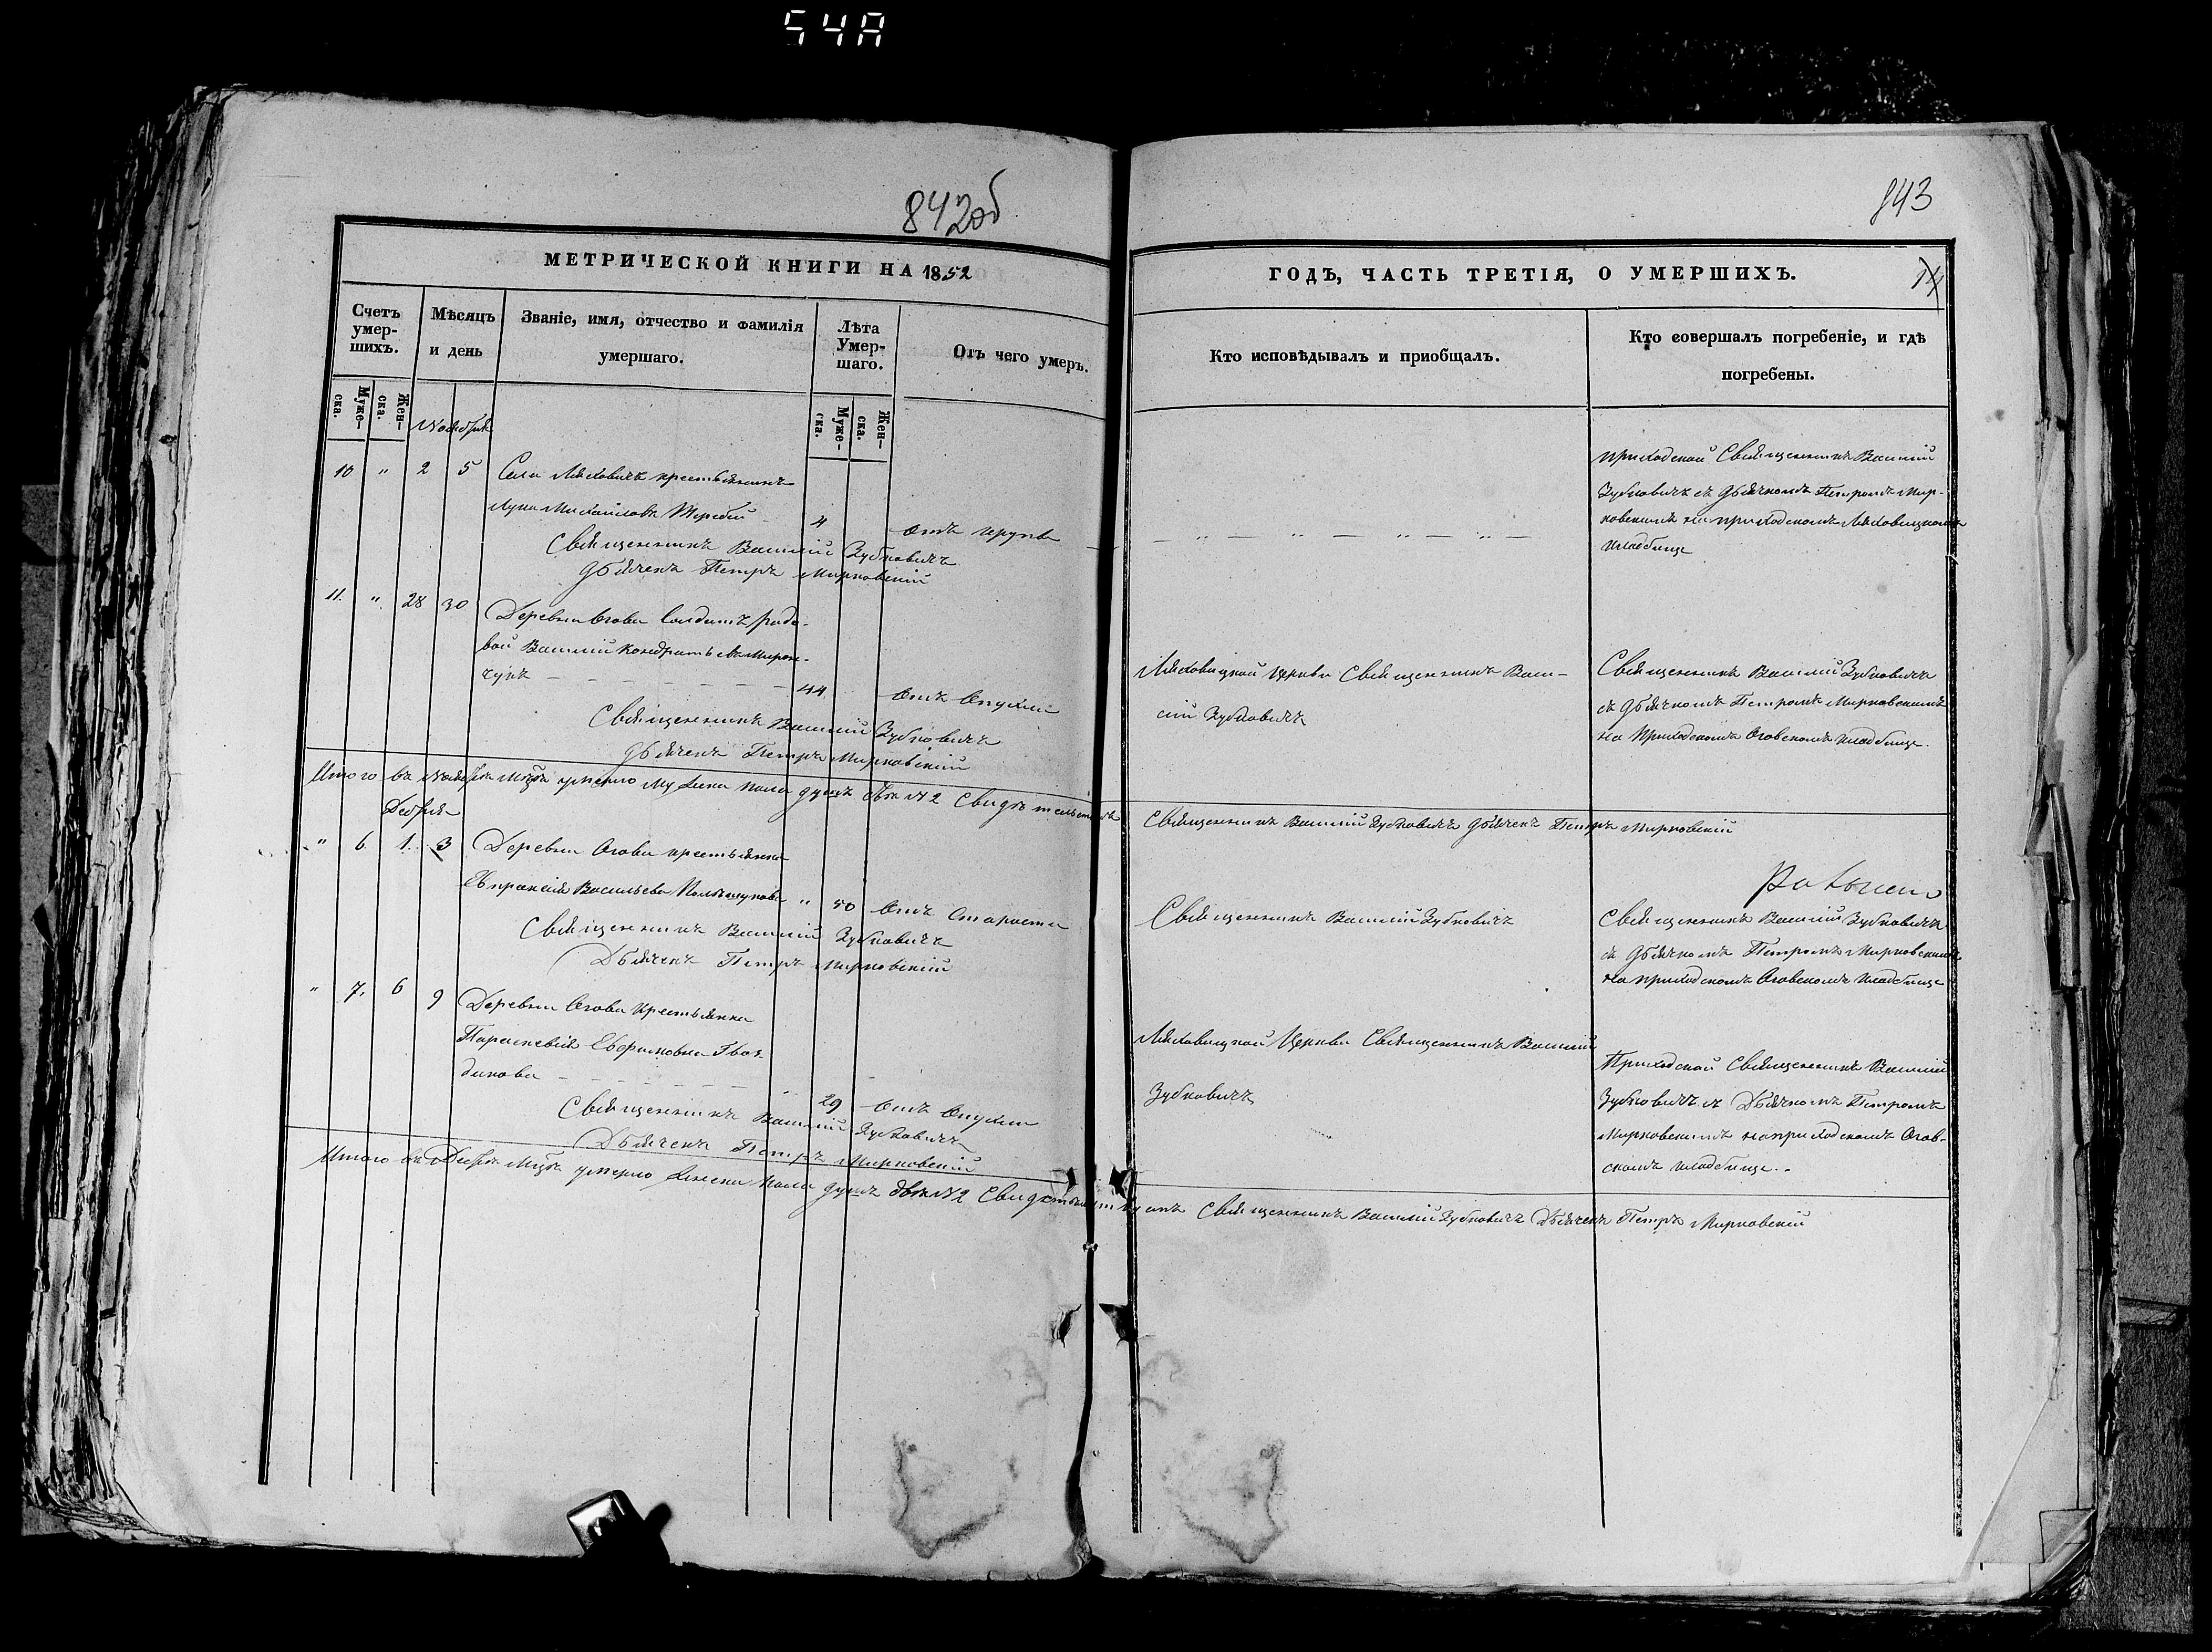 54A
842об
843
МЕТРИЧЕСКОЙ КНИГИ НА 1852
ГОДЪ, ЧАСТЬ ТРЕТІЯ, О УМЕРШИХЪ.
14
Счетъ
умер-
шихъ.
Мѣсяцъ
и день
Званіе, имя, отчество и фамилія
умершаго.
Лѣта
Умер-
шаго.
Отъ чего умеръ.
Кто исповѣдывалъ и приобщалъ.
Кто совершалъ погребеніе, и гдѣ
погребены.
Муже-
ска.
Жен-
ска.
Муже-
ска.
Жен-
ска.
Ноября
10 " 2 5 Села Ляховичъ крестьянинъ
Лука Михайловъ
4 отъ крупа
Священникъ Василий Зубковичъ
Дьячекъ Петръ Мирковский
приходской Священникъ Василий
Зубковичъ съ дьячкомъ Петромъ Мир-
ковскимъ на приходскомъ Ляховицкомъ
кладбище
11. " 28 30 Деревни Огова Солдатъ рядо-
вой Василий Кондратьевъ Мирон-
чукъ 44 отъ опухли
Священникъ Василий Зубковичъ
дьячекъ Петръ Мирковский
Ляховицкой Церкви Священникъ Васи-
лий Зубковичъ
Священникъ Василий Зубковичъ
съ дьячкомъ Петромъ Мирковскимъ
на Приходскомъ Оговскомъ кладбище.
Итого въ Ноябрѣ умерло мужеска пола душъ двѣ № 2
Священникъ Василий Зубковичъ дьячекъ Петръ Мирковский
" 6 1 3 Деревни Огова крестьянка
Евпраксия Васильева " 50 отъ Старости
Священникъ Василий Зубковичъ
Дьячекъ Петръ Мирковский
Священникъ Василий Зубковичъ
Священникъ Василий Зубковичъ
съ дьячкомъ Петромъ Мирковскимъ
на приходскомъ Оговскомъ кладбище
" 7. 6 9 Деревни Огова крестьянка
Параскевия Ефимовна Гвоз-
дикова
29 отъ опухли
Священникъ Василий Зубковичъ
Дьячекъ Петръ Мирковский
Ляховицкой Церкви Священникъ Василий
Зубковичъ
Приходской Священникъ Василий
Зубковичъ съ Дьячкомъ Петромъ
Мирковскимъ на приходскомъ Огов-
скомъ кладбище.
Итого въ умерло женска пола душъ двѣ № 2
Священникъ Василий Зубковичъ Дьячекъ Петръ Мирковский